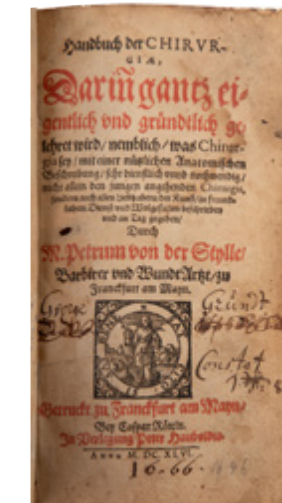 Handbuch der CHIRVR-
GIÆ,
Dariñ gantz ei-
gentlich vnd gründtlich ge-
lehret wird / nemblich / was Chirur-
gia sey / mit einer nützlichen Anatomischen
Beschreibung / sehr dienstlich vnnd nothwendig /
nicht allein den jungen angehenden Chirurgis,
sondern auch allen der Kunst /
Dienst vnd
vnd an Tag gegeben /
Durch
M. Petrum von der Stylle /
Barbirer vnd Wundt Artzt / zu
Franckfurt am Mayn.
Georg Gründt
Constat
Getruckt zu Franckfurt am Mayn /
Bey Caspar Röteln.
In Verlegung Peter
Anno M. DC. XLVI.
16.66. 1646